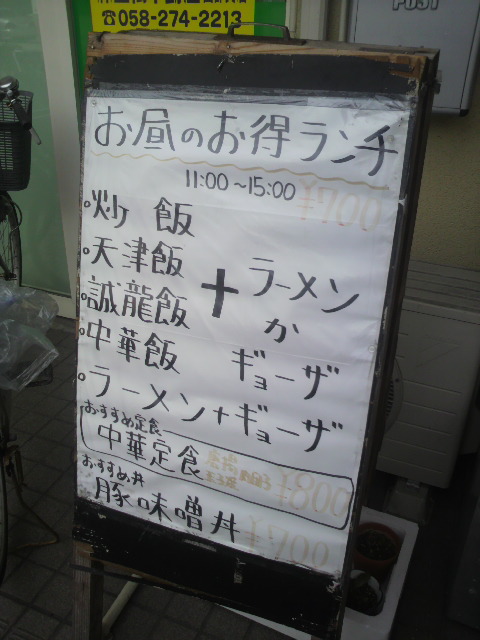 ☎058-274-2213
POST
お昼のお得ランチ
11:00～15:00 ¥700
・炒飯
・天津飯
・誠龍飯
・中華飯
＋ ラーメン
か
ギョーザ
・ラーメン+ギョーザ
おすすめ定食
中華定食 ¥800
おすすめ丼
豚味噌丼 ¥700